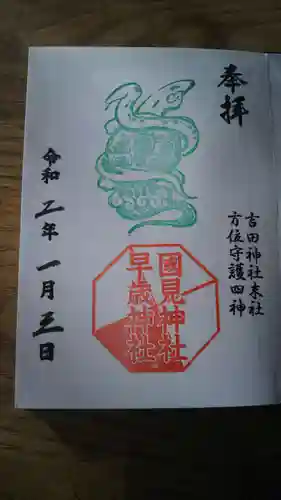 奉拝
吉田神社末社
方位守護四神
國見神社
早歳神社
令和二年一月三日